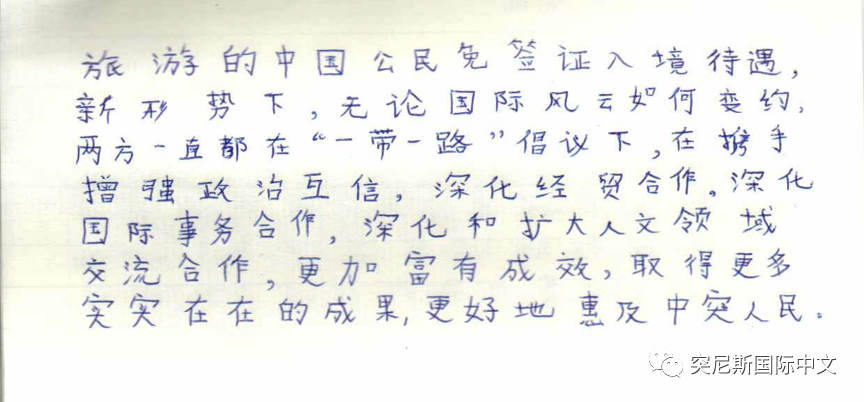 旅游的中国公民免签证入境待遇，
新形势下，无论国际风云如何变约，
两方一直都在“一带一路”倡议下，在携手
增强政治互信，深化经贸合作。深化
国际事务合作，深化和扩大人文领域
交流合作，更加富有成效，取得更多
实实在在的成果，更好地惠及中突人民。
突尼斯国际中文